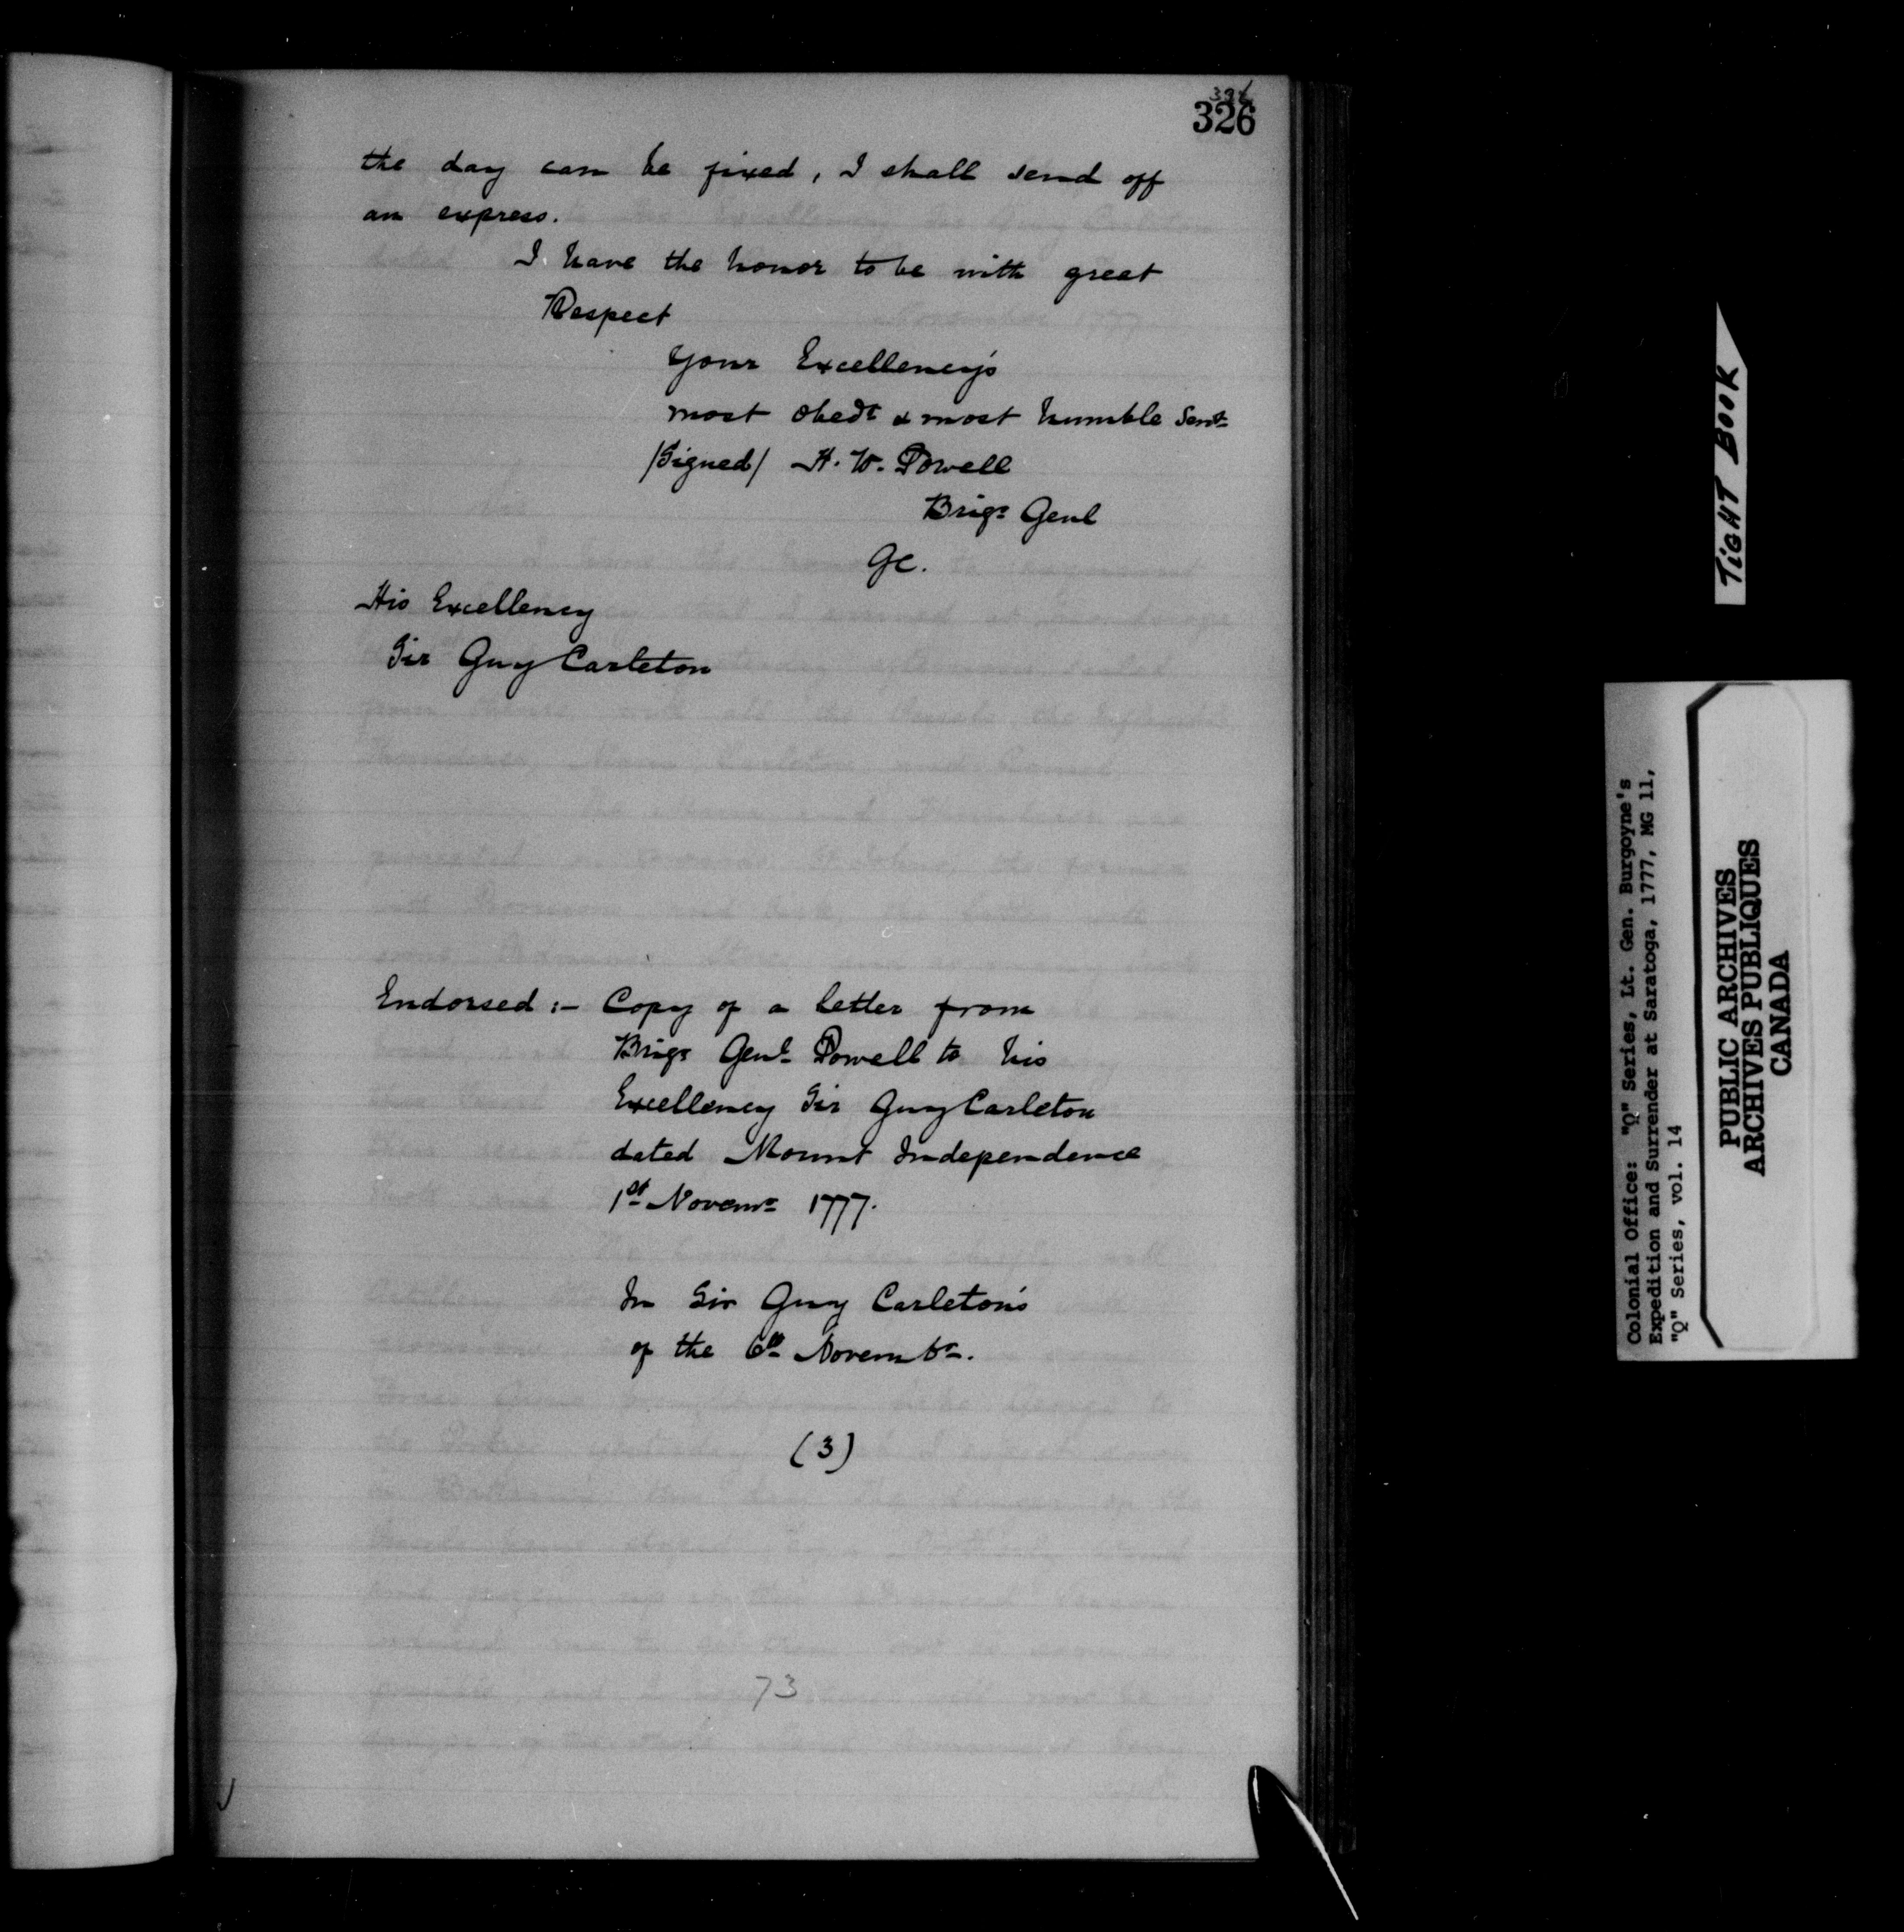 326
the day can be fixed, I shall send off
an express.
I have the honor to be with great
Respect
Your Excellency's
most obedt & most humble Servt
/Signed/ H. W. Powell
Brigr Genl
GC.
His Excellency
Sir Guy Carleton
Endorsed :- Copy of a letter from
Brigr Genl Powell to his
Excellency Sir Guy Carleton
dated Mount Independence
1st Novemr 1777.
In Sir Guy Carleton's
of the 6th Novembr.
(3)
73
TIGHT BOOK
Colonial Office: "Q" Series, Lt. Gen. Burgoyne's
Expedition and Surrender at Saratoga, 1777, MG 11,
"Q" Series, vol. 14
PUBLIC ARCHIVES
ARCHIVES PUBLIQUES
CANADA